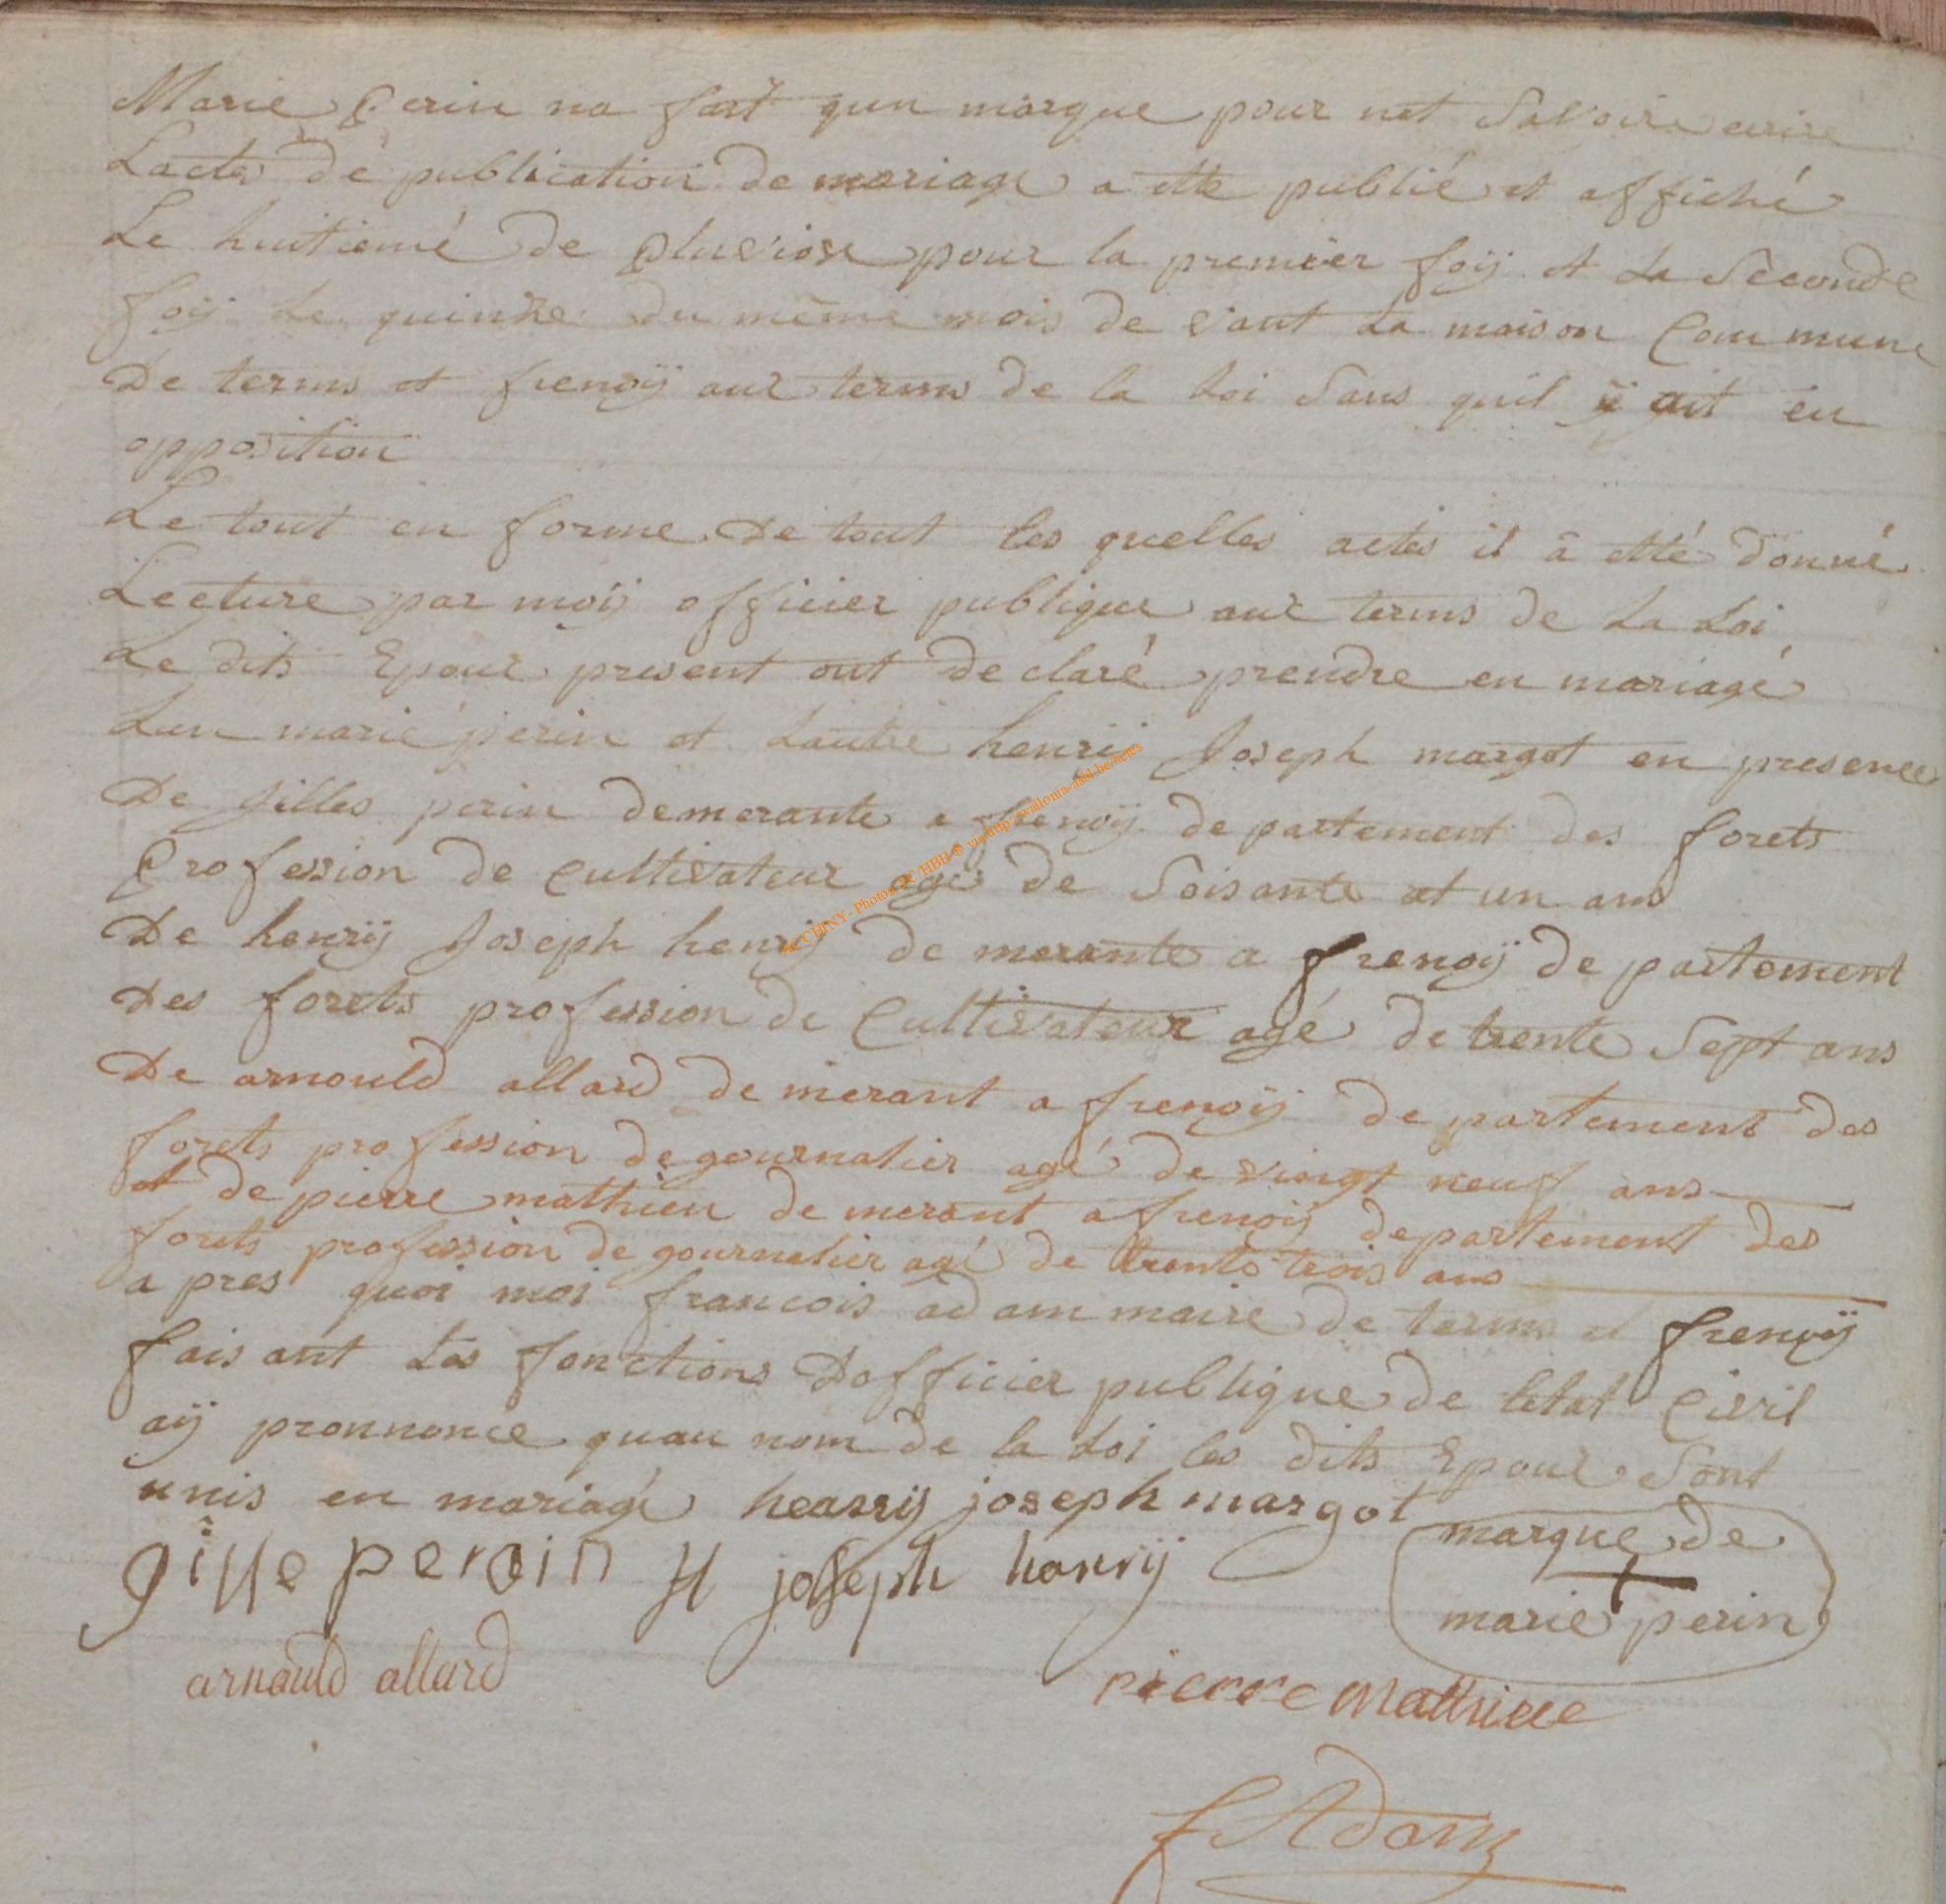 Marie perin na fait qun marque pour net Savoire ecrire
Lactes de publication de mariage a ette publié et affiché
Le huitiemé de pluviose pour la premier foÿ et La Seconde
foÿ Le quinze du même mois de vant La maison Commune
De terms et frenoÿ aux terms de la Loi Sans quil ÿ ait eu
opposition
Le tout en forme De tout les quelles actes il â etté donné
Lecture par moÿ officier publique aux terms de La Loi
Le dits Epoux present ont de claré prendre en mariagé
Lun marie perin et Lautre henrÿ Joseph margot en presence
De Jilles perin demerante a frenoÿ de partement des forets
Profession de Cultivateur agé de Soisante et un ans
De henrÿ Joseph henrÿ de merante a frenoÿ de partement
Des forets profession de Cultivateur agé de trente Sept ans
De arnould allard de merant a frenoÿ de partement des
forets profession de gournalier agé de vingt neuf ans
et de pierre mathieu de merant a frenoÿ departement des
forets profession de gournalier agé de trente trois ans
a pres quoi moi francois adam maire de terms et frenoÿ
fais ant Les fonctions Dofficier publique de letat Civil
aÿ pronnonce quau nom de la Loi les dits Epoux Sont
unis en mariagé henrij joseph margot
marque de
gille peroin H joseph henrij
+
marie perin
arnould allard
pierre Mathieu
f Adam
AC CHINY - Photos AC HBH © via http://wallonia-asbl.be/actes